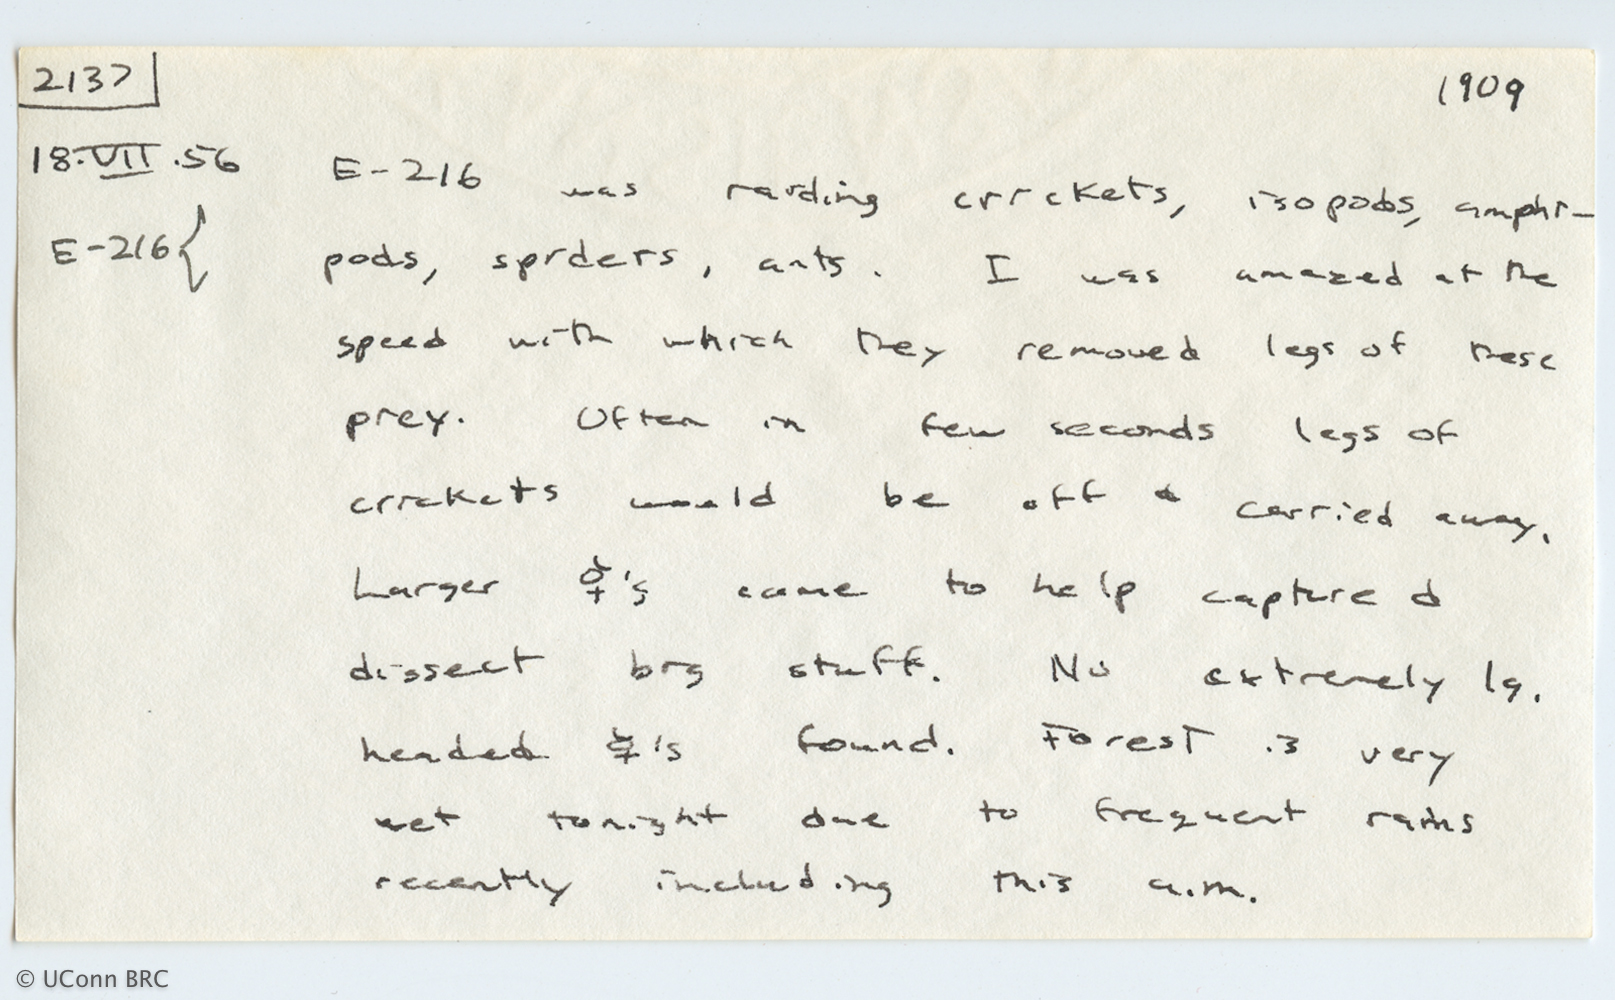 2137 1909
18.VII.56 E-216 was raiding crickets, isopods, amphi-
E-216{ pods, spiders, ants. I was amazed at the
speed with which they removed legs of these
prey. Often in few seconds legs of
crickets would be off & carried away.
Larger ☿'s came to help capture &
dissect big stuff. No extremely lg.
headed ☿'s found. Forest is very
wet tonight due to frequent rains
recently including this a.m.
© UConn BRC